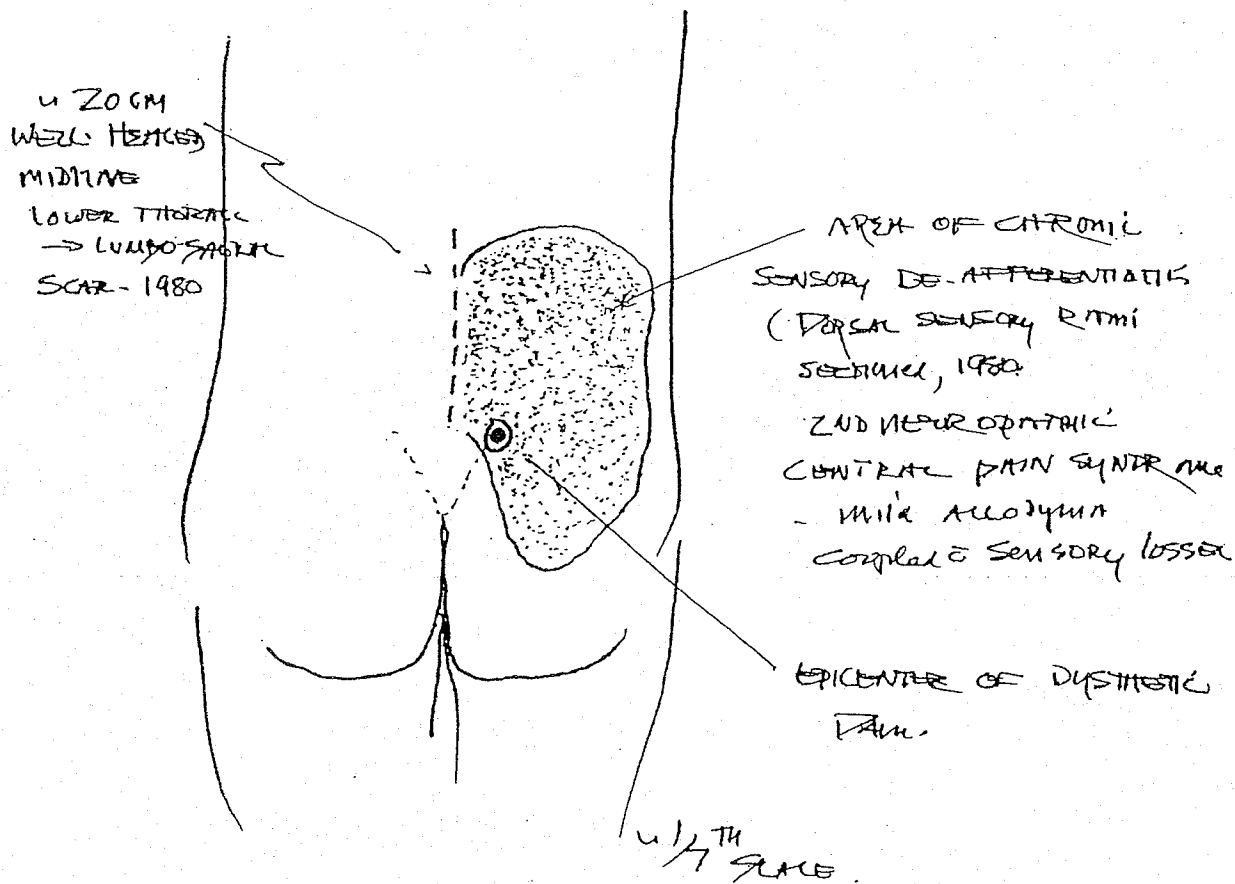 ~ 20 CM
WELL-HEALED
MIDLINE
LOWER THORACIC
→ LUMBO-SACRAL
SCAR - 1980
AREA OF CHRONIC
SENSORY DE-AFFERENTIATIS
(DORSAL SENSORY RAMI
SECTIONED, 1980.
2ND NEUROPATHIC
CENTRAL PAIN SYNDROME
- MILD ALLODYNIA
COUPLED C̄ SENSORY LOSSES
EPICENTER OF DYSTHETIC
PAIN.
~ 1/7TH
SCALE.